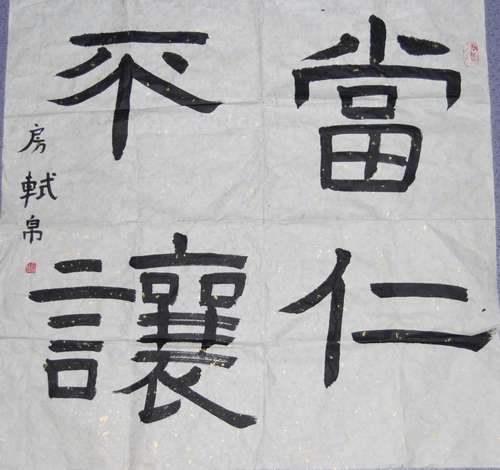 當仁
不讓
房軾帛